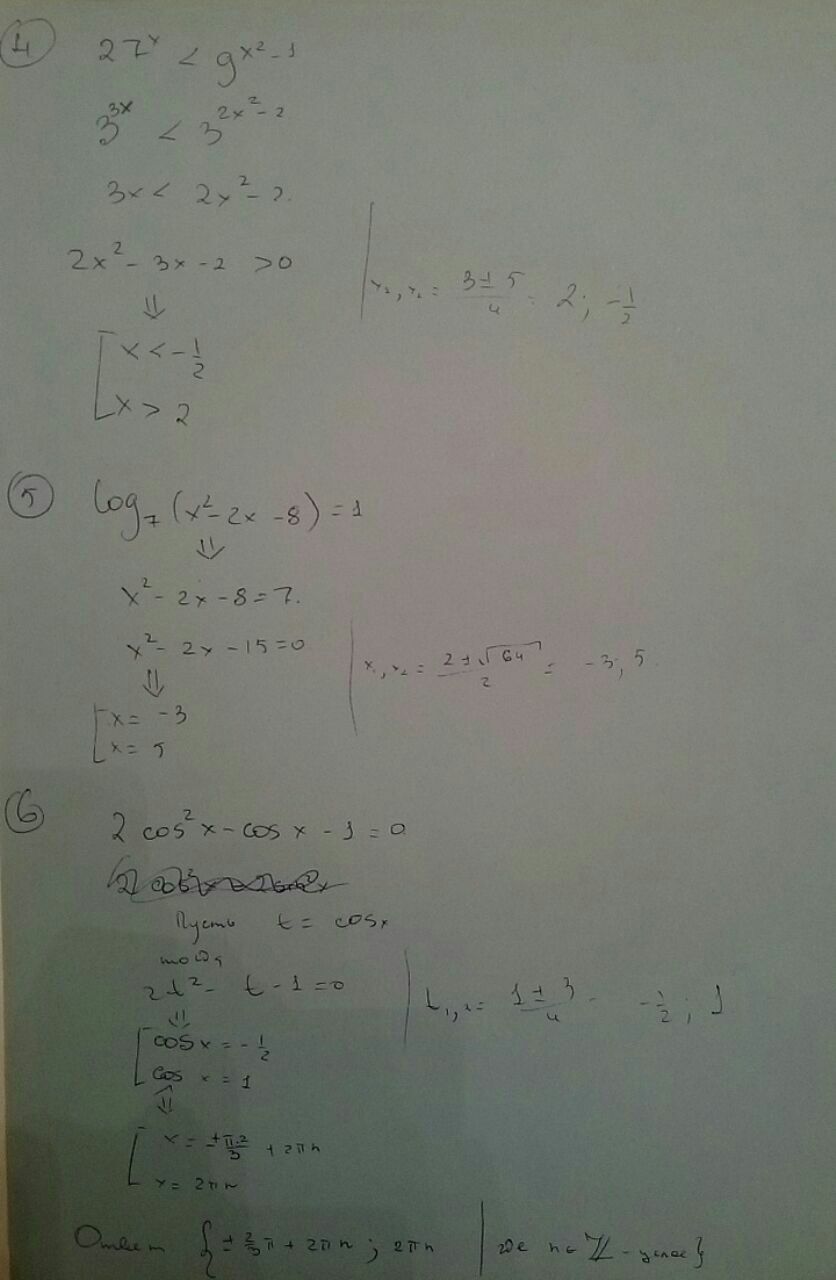 4 27^x < 9^{x^2-1}
3^{3x} < 3^{2x^2-2}
3x < 2x^2-2.
2x^2-3x-2 >0
x_2, x_2 = \frac{3±5}{4} = 2; -\frac{1}{2}
⇓
[ x < -\frac{1}{2}
x > 2
5 log_7 (x^2-2x-8) = 1
⇓
x^2-2x-8=7.
x^2-2x-15=0
x_1, x_2 = \frac{2±\sqrt{64}}{2} = -3; 5
⇓
[ x = -3
x = 5
6 2 cos^2 x - cos x - 1 = 0
Пусть t = cos x
тогда
2t^2 - t - 1 = 0
t_{1,2} = \frac{1±3}{4} = -\frac{1}{2}; 1
⇓
[ cos x = -\frac{1}{2}
cos x = 1
⇓
[ x = ±\frac{π·2}{3} + 2πn
x = 2πn
Ответ { ±\frac{2}{3}π + 2πn ; 2πn | где n ∈ ℤ - целое}